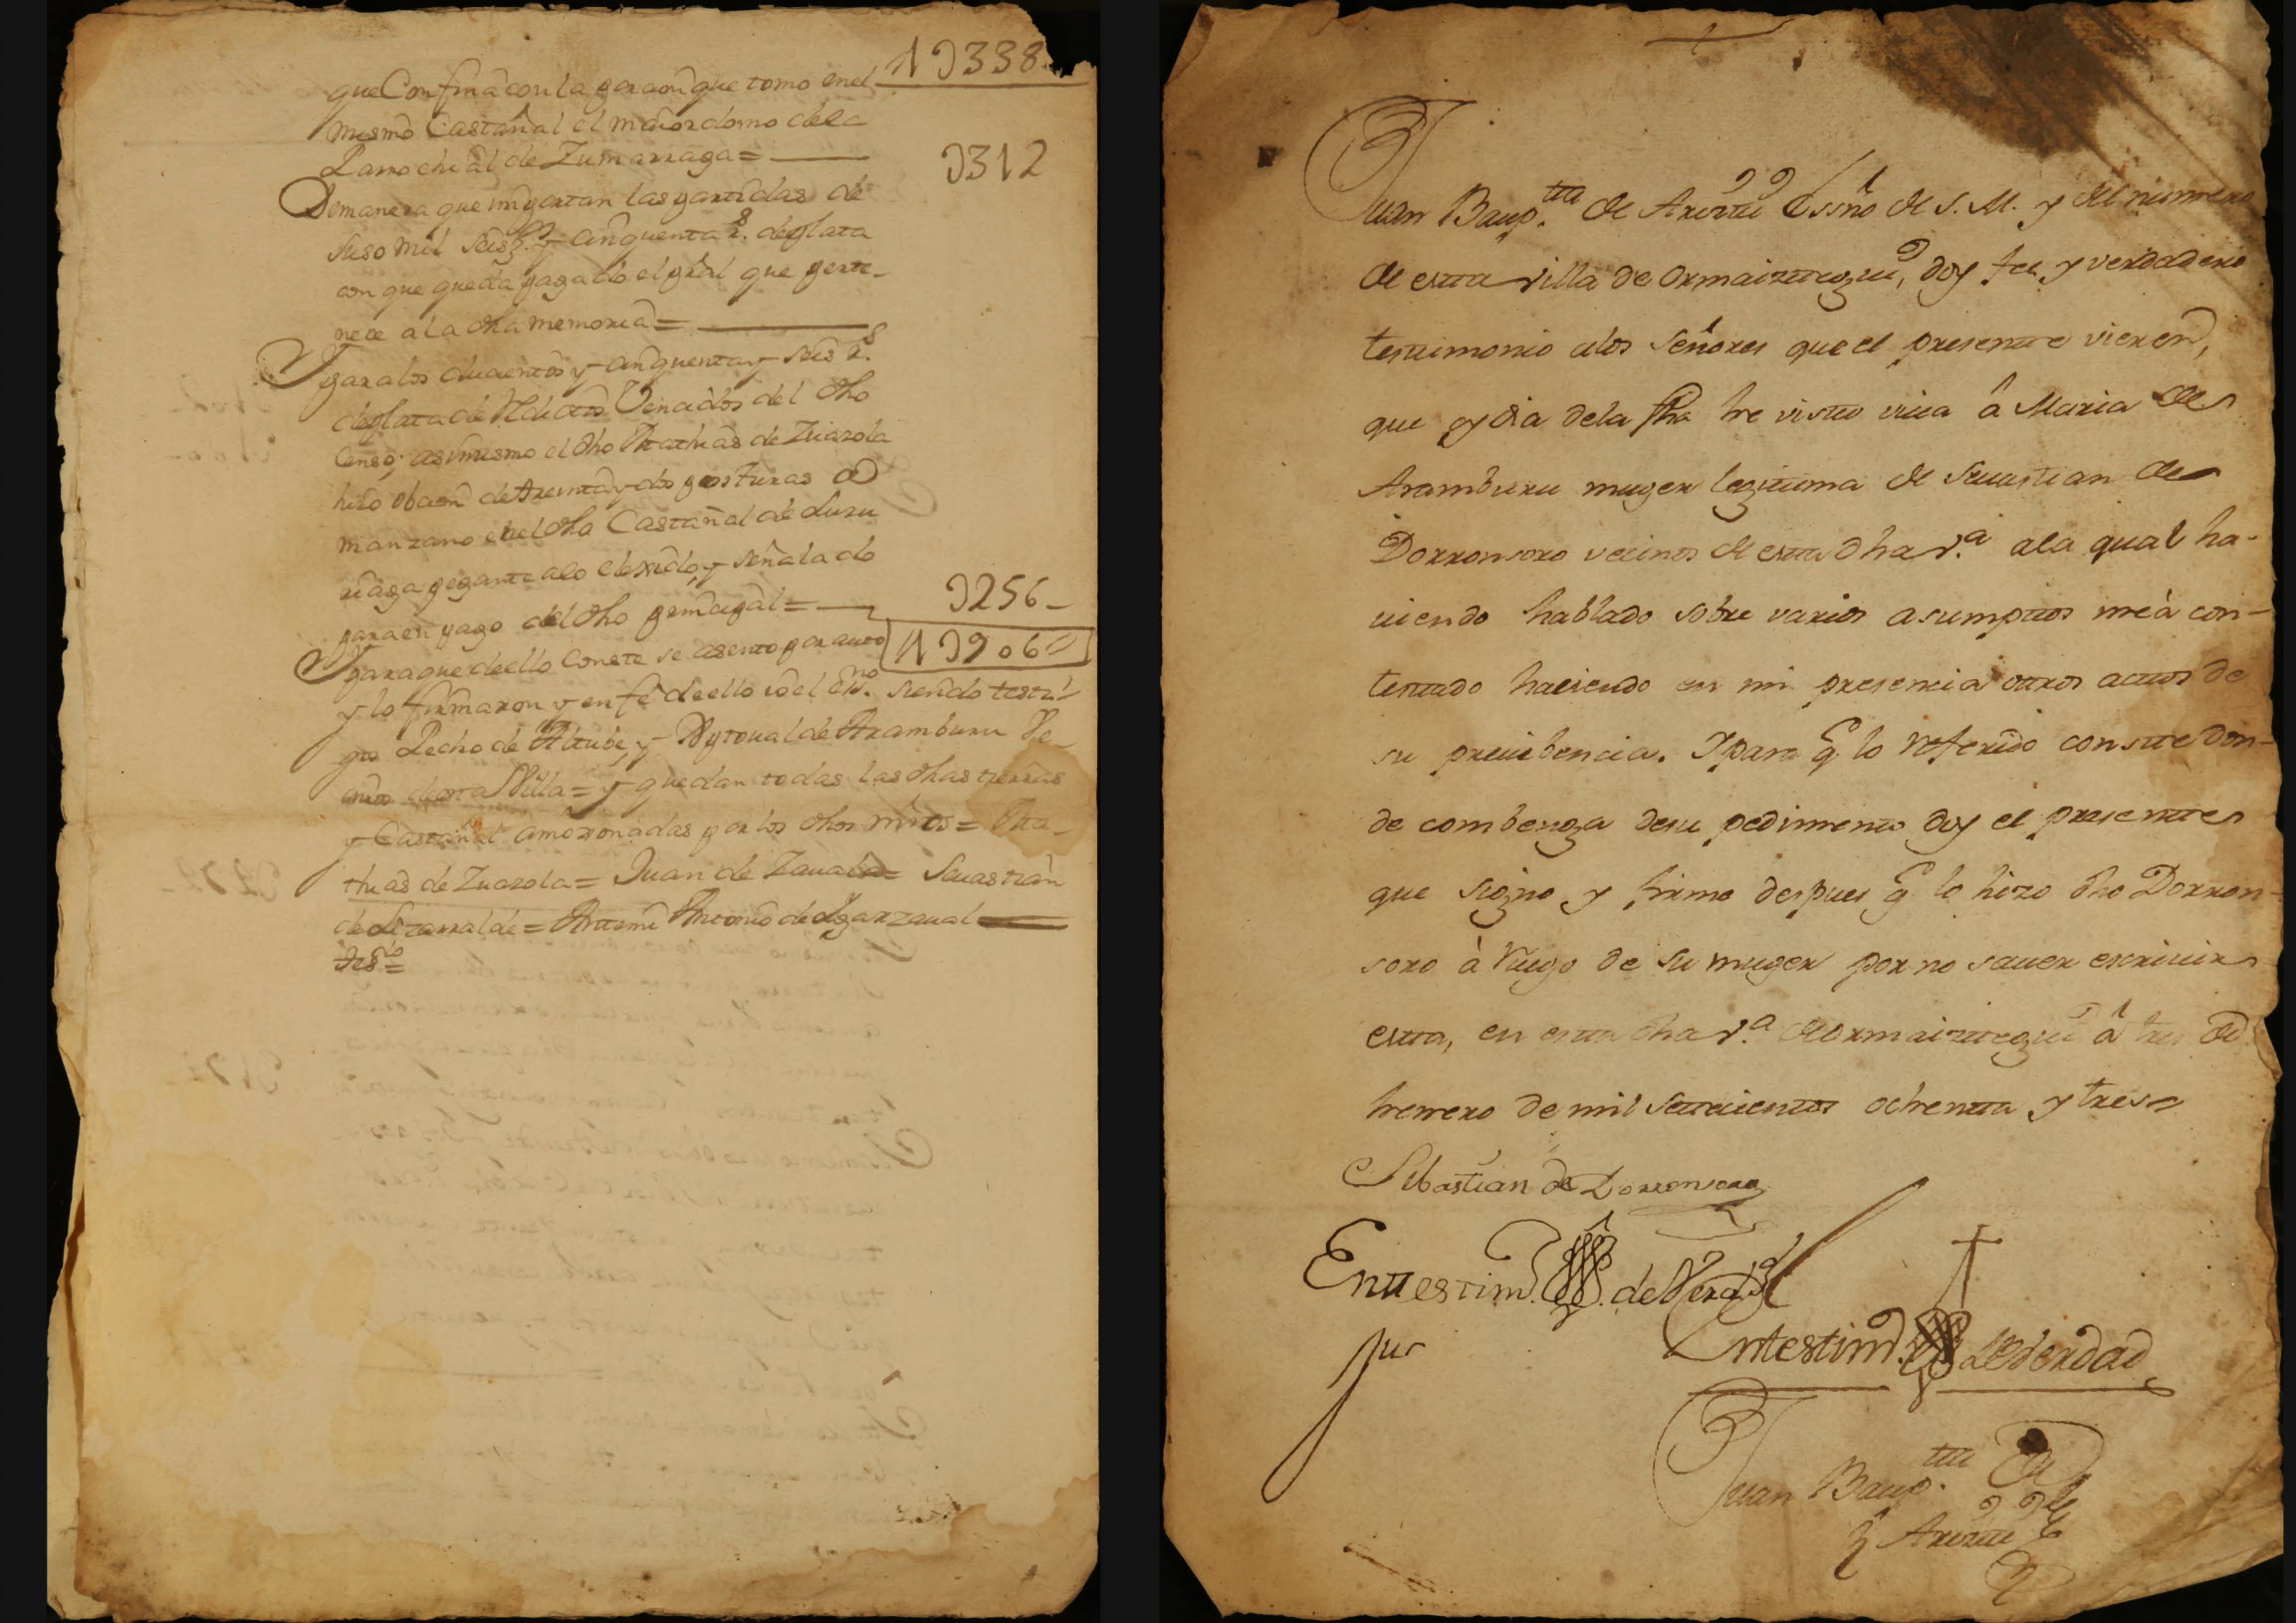 que Confina con la porcion que tomo en el 1U338
mismo Castañal el maiordomo dela
Parrochial de Zumarraga =
U312
Demanera que importan las partidas de
suso mil seis zs. y cinquenta rs. deplata
con que queda pagado el pral que perte-
nece ala dha memoria =
Y para los ducientos y cinquenta y seis rs.
deplata de Reditos Vencidos del dho
Censo; asimismo el dho Mathias de Zuazola
hizo obaon de treinta y dos posturas de
manzano en el dho Castañal de Lusu
riaga pegante alo elexido, y señalado
para en pago del dho prinzipal = U256
Y para que deello Conste se asento por auto 1U906
y lo firmaron y en fe deello io el esno. siendo testi-
gos Pedro de Altube, y Xptoual de Aramburu Ve-
cinos desta Villa = y quedan todas las dhas tierras
y Castañal amoxonadas por los dhos mros = Ma-
thias de Zuazola = Juan de Zauala = Sauastian
de Lizarralde = Antemi Antonio de Ygarzaual
Juan Bauptta. de Ariztti Essno de S. M. y del numero
de estta villa de Ormaizttegui, doy fee, y verdadero
testtimonio alos Señores que el presentte vieren,
que oy dia dela fha he vistto viua â Maria de
Aramburu muger legittima de Seuasttian de
Dorronsoro vecinos de estta dha v.ª ala qual ha-
uiendo hablado sobre varios asumpttos me à con-
testtado haciendo en mi presencia ottros acttos de
su preuibencia. Y para q lo referido constte don-
de combenga desu pedimento doy el presentte
que signo y firmo despues q lo hizo dho Dorron-
soro à ruego de su muger por no sauer escriuir
estta, en estta dha v.ª de Ormaizttegui â tres de
henero de mil settecienttos ochentta y tres
Sebastian de Dorronsoro
En ttestim.º de Verd.d
Entestim.º de Verdad
Juan Bauptta. de
Ariztti